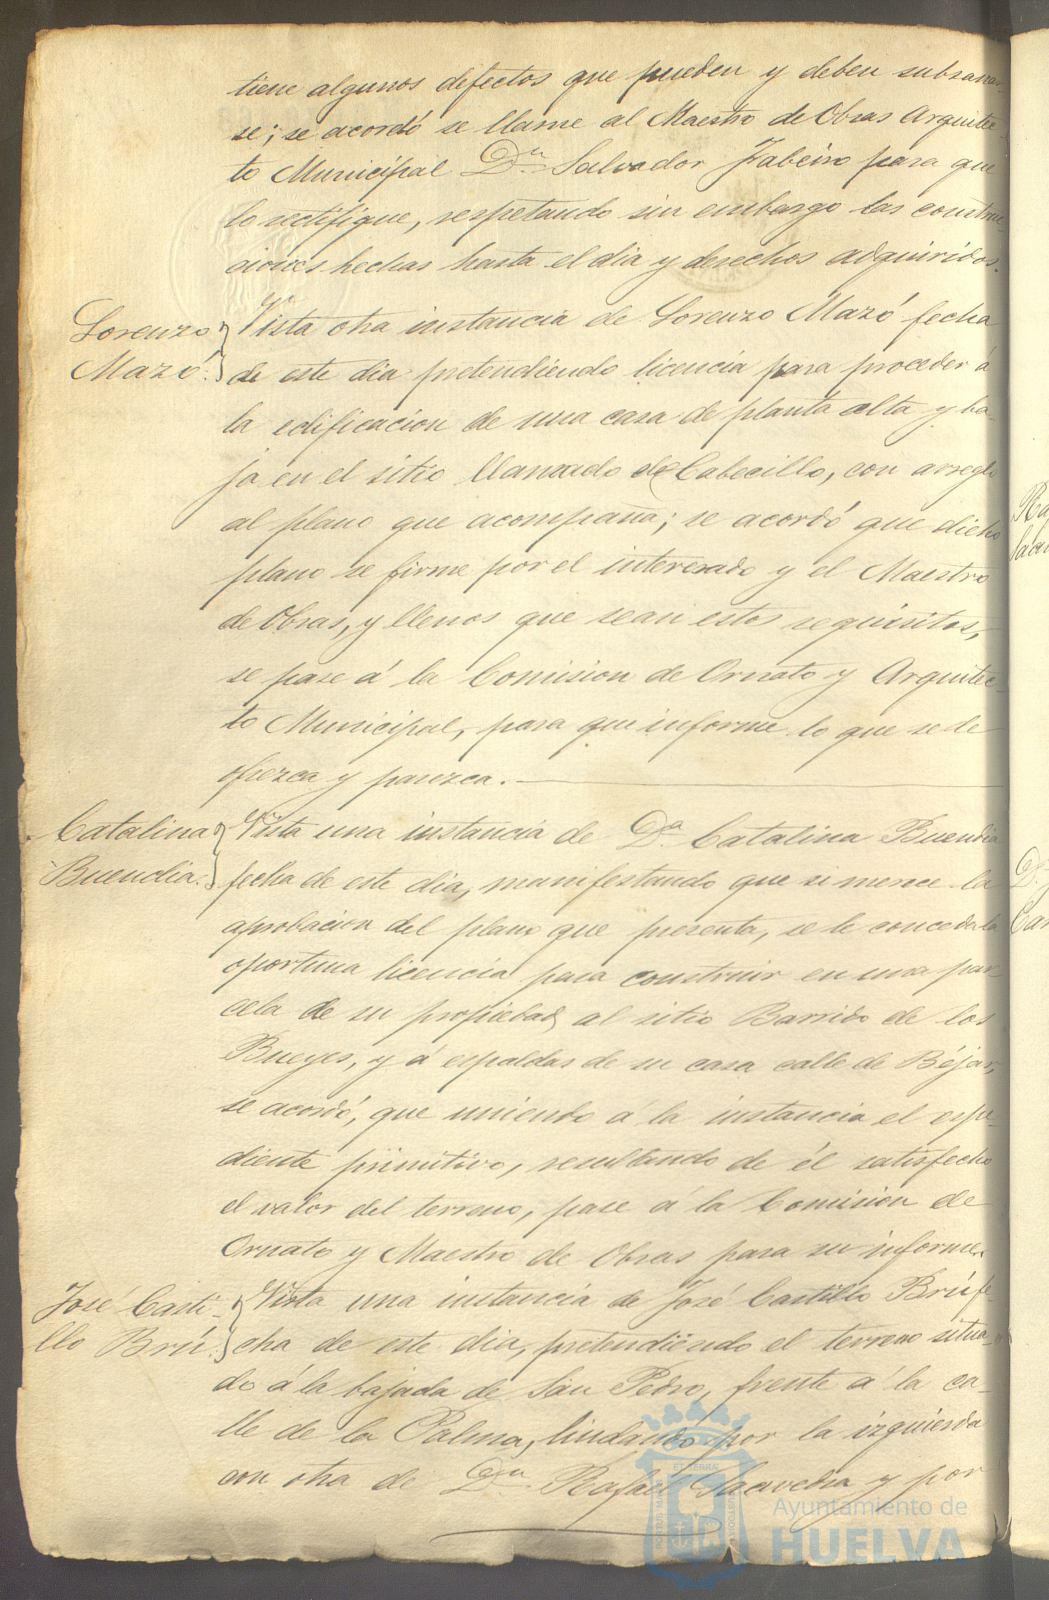 tiene algunos defectos que pueden y deben subsanar-
se; se acordó se llame al Maestro de Obras Arquitec-
to Municipal Dn Salvador Fabeiro para que
lo rectifique, respetando sin embargo las construc-
ciones hechas hasta el dia y derechos adquiridos.
Lorenzo
Mazó.
Vista otra instancia de Lorenzo Mazó fecha
de este dia pretendiendo licencia para proceder á
la edificacion de una casa de planta alta y ba-
ja en el sitio llamado del Cabecillo, con arreglo
al plano que acompaña; se acordó que dicho
plano se firme por el interesado y el Maestro
de Obras, y llenos que sean estos requisitos,
se pase á la Comision de Ornato y Arquitec-
to Municipal, para que informe lo que se le
ofrezca y parezca.
Catalina
Buendia.
Vista una instancia de Da. Catalina Buendia
fecha de este dia, manifestando que si merece la
aprobacion del plano que presenta, se le conceda la
oportuna licencia para construir en una par-
cela de su propiedad al sitio Barrido de los
Bueyes, y á espaldas de su casa calle de Béjar,
se acordó, que uniendo á la instancia el espe-
diente primitivo, resultando de él satisfecho
el valor del terreno, pase á la Comision de
Ornato y Maestro de Obras para su informe.
José Casti-
llo Brú.
Vista una instancia de José Castillo Brú fe-
cha de este dia, pretendiendo el terreno situa-
do á la bajada de San Pedro, frente á la ca-
lle de la Palma, lindando por la izquierda
con otra de Dn Rafael Saavedra y por
Ayuntamiento de
HUELVA